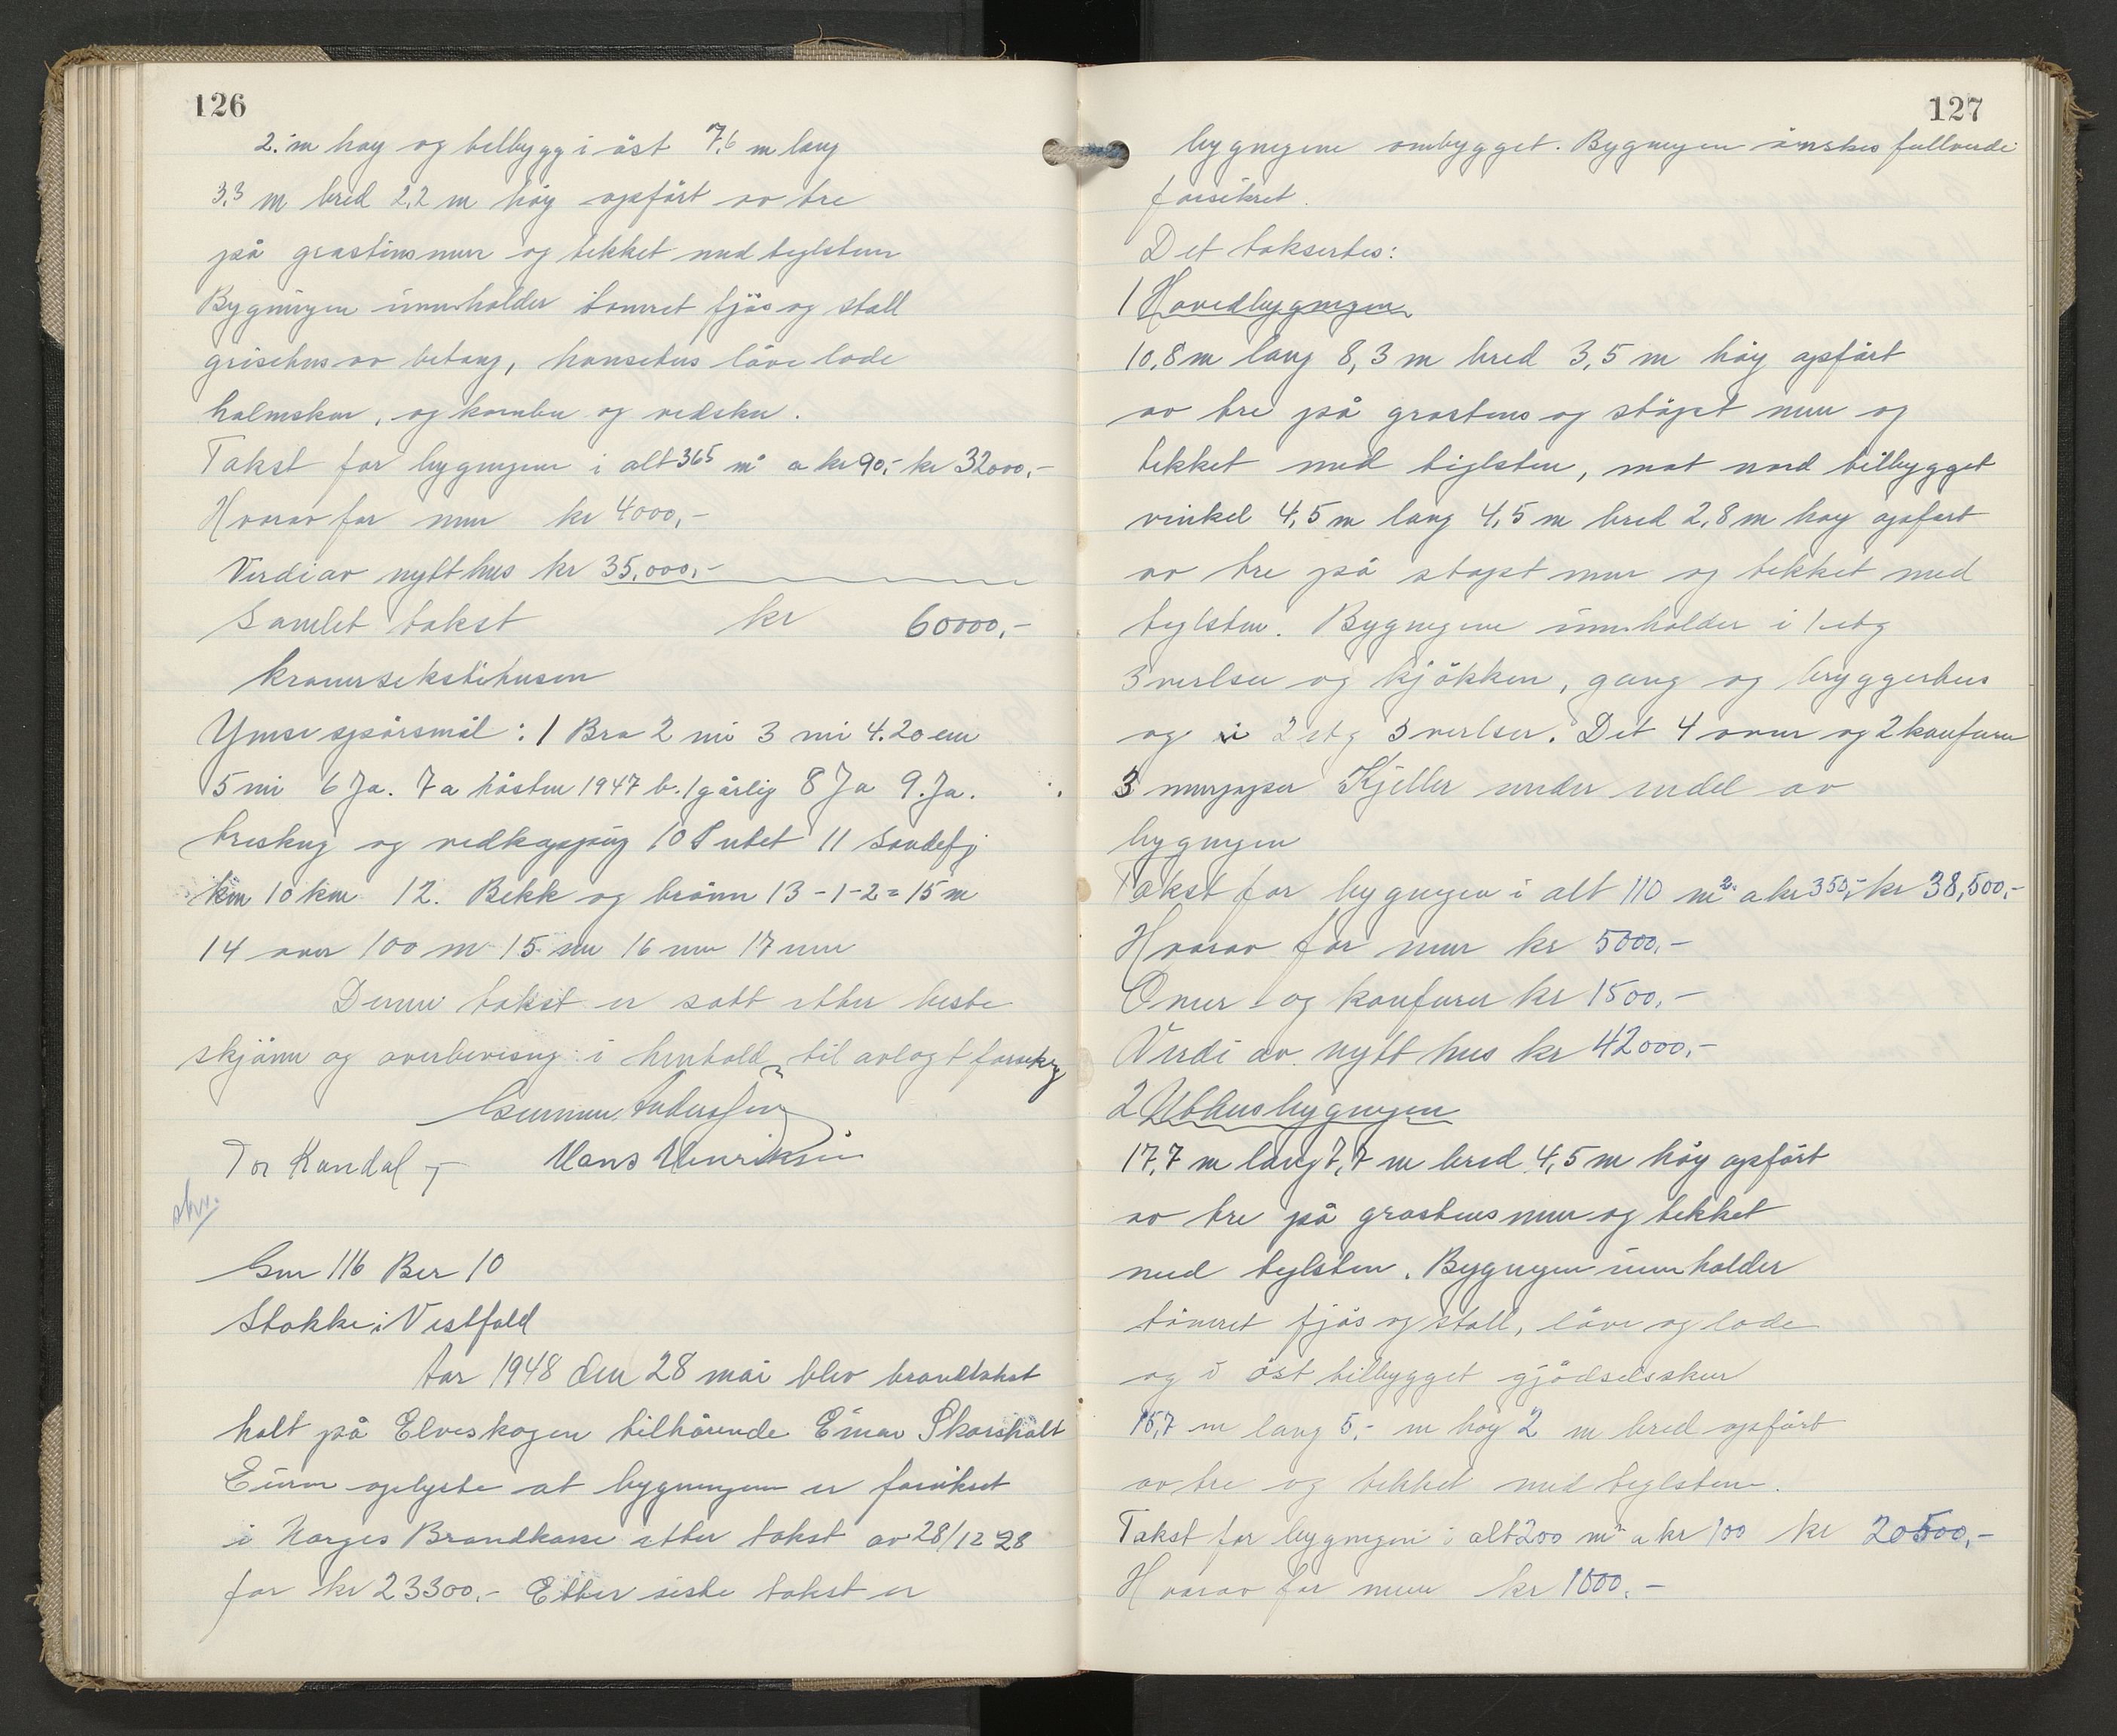 126
2. m høy og tilbygg i öst 7,6 m lang
3,3 m bred 2,2 m höy opfört av tre
på grastensmur og tekket med teglsten
Bygningen innholder tömret fjös og stall
grisehus av betong, hönsehus löve lade
halmskur, og kornbu og vedskur.
Takst for bygningen i alt 365 m² a kr 90,- kr 32000,-
Hvorav for mur kr 4000,-
Verdi av nytt hus kr 35,000,-
Samlet takst kr 60000,-
kronersekstitusen
Ymse spörsmål: 1 Bra 2 nei 3 nei 4. 20 cm
5 nei 6 Ja. 7 a hösten 1947 b. 1 gårlig 8 Ja 9. Ja.
tresking og vedkapping 10 Intet 11 Sandefj
km 10 km 12. Bekk og brönn 13 - 1 - 2 = 15 m
14 over 100 m 15 nei 16 nei 17 nei
Denne takst er satt etter beste
skjönn og overbevisning i henhold til avlagt forsikring
Gunnar Andersen
Tor Kandal Hans Henriksen
skr.
Gnr 116 Bnr 10
Stokke i Vestfold
Aar 1948 den 28 mai blev brandtakst
holt på Elveskogen tilhörende Einar Skorsholt
Eieren oplyste at bygningene er forsikret
i Norges Brandkasse etter takst av 28/12 28
for kr 23300.- Etter siste takst er
127
bygningene ombygget. Bygningen önskes fullverdi
forsikret.
Det taksertes:
1 Hovedbygningen
10,8 m lang 8,3 m bred 3,5 m höy opfört
av tre på grastens og stöpt mur og
tekket med teglsten, mot nord tilbygget
vinkel 4,5 m lang 4,5 m bred 2,8 m høy opfört
av tre på stöpt mur og tekket med
teglsten. Bygningene innholder i 1 etg
3 verlser og kjökken, gang og bryggerhus
og i 2 etg 3 verlser. Det 4 ovner og 2 komfurer
3 murpiper Kjeller under endel av
bygningen
Takst for bygningen i alt 110 m² a kr 350,- kr 38,500,-
Hvorav for mur kr 5000,-
Ovner og komfurer kr 1500,-
Verdi av nytt hus kr 42000,-
2 Uthusbygningen
17,7 m lang 7,7 m bred 4,5 m höy opfört
av tre på grastensmur og tekket
med teglsten. Bygningen innholder
tömret fjös og stall, löve og lade
og i öst tilbygget gjödselsskur
15,7 m lang 5,- m höy 2 m bred opfört
av tre og tekket med teglsten.
Takst for bygningene i alt 200 m² a kr 100 kr 20500,-
Hvorav for mur kr 1000.-